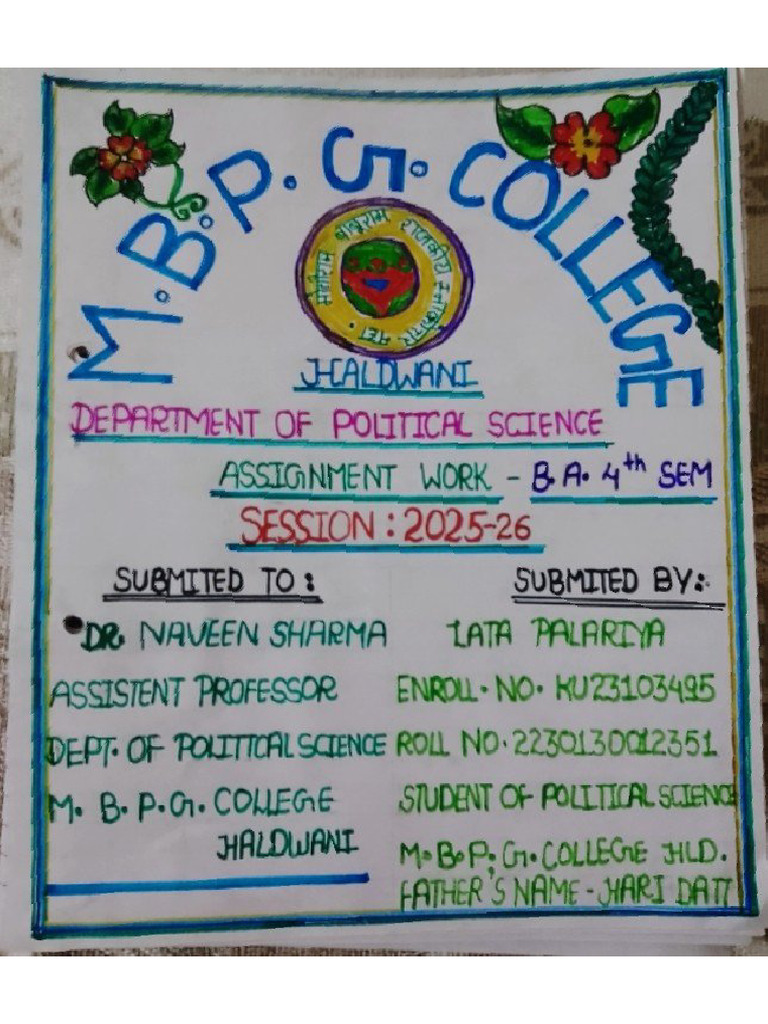 M.B.P.G. COLLEGE
मोतीराम बाबूराम राजकीय स्नातकोत्तर महा.
HALDWANI
DEPARTMENT OF POLITICAL SCIENCE
ASSIGNMENT WORK - B.A. 4th SEM
SESSION : 2025-26
SUBMITED TO :
DR. NAVEEN SHARMA
ASSISTENT PROFESSOR
DEPT. OF POLITTCAL SCIENCE
M. B. P.G. COLLEGE
HALDWANI
SUBMITED BY:-
LATA PALARIYA
ENROLL. NO. KU23103495
ROLL NO. 2230130012351
STUDENT OF POLITICAL SCIENCE
M.B.P.G. COLLEGE HLD.
FATHER'S NAME - HARI DATT